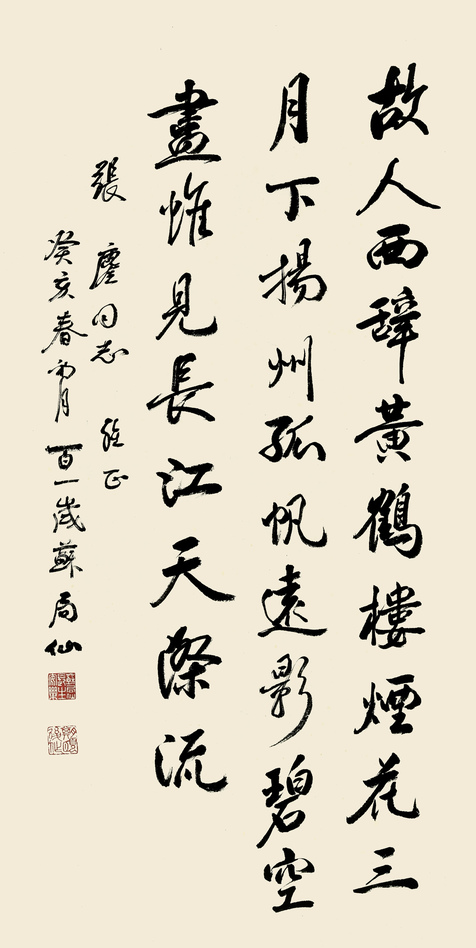 故人西辭黃鶴樓煙花三
月下揚州孤帆遠影碧空
盡惟見長江天際流
張 塵同志 正
癸亥春 月百一歲蘇局仙